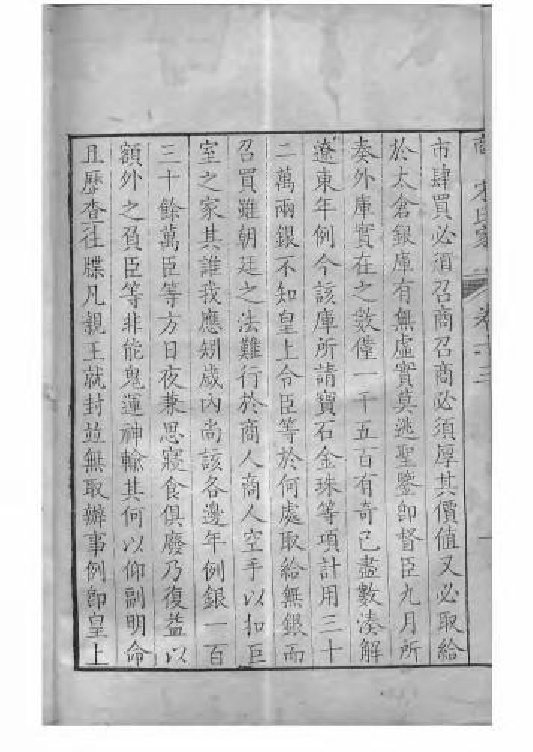 市肆買必須召商召商必須厚其價值又必取給
於太倉銀庫有無虛實莫逃聖鑒卽督臣九月所
奏外庫實在之數僅一千五百有奇已盡數湊解
遼東年例今該庫所請寶石金珠等項計用三十
二萬兩銀不知皇上令臣等於何處取給無銀而
召買雖朝廷之法難行於商人商人空手以扣巨
室之家其誰我應矧歲內尚該各邊年例銀一百
三十餘萬臣等方日夜兼思寢食俱廢乃復益以
額外之負臣等非能鬼運神輸其何以仰副明命
且歷查往牒凡親王就封並無取辦事例卽皇上